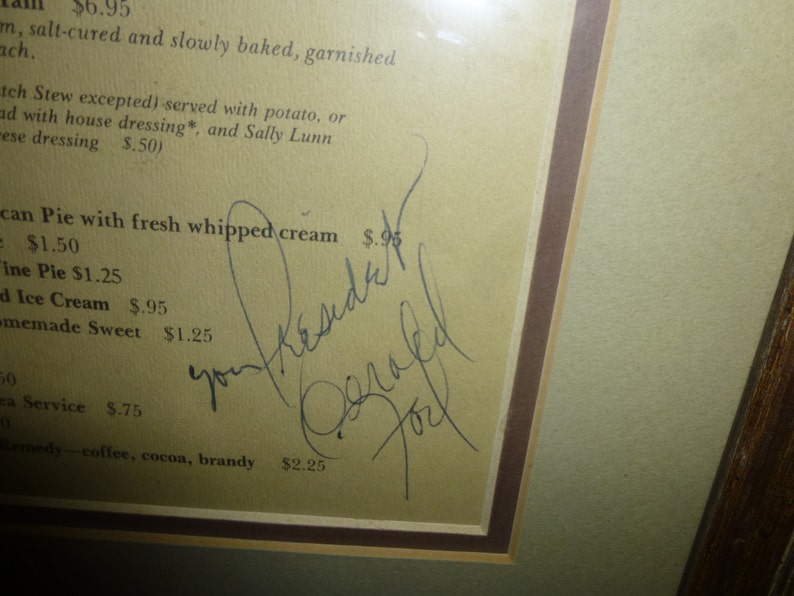 $6.95
m, salt-cured and slowly baked, garnished
ach.
tch Stew excepted) served with potato, or
ad with house dressing*, and Sally Lunn
ese dressing $.50)
can Pie with fresh whipped cream $.95
e $1.50
Vine Pie $1.25
d Ice Cream $.95
omemade Sweet $1.25
50
ea Service $.75
0
Remedy—coffee, cocoa, brandy $2.25
your President
Gerald
Ford